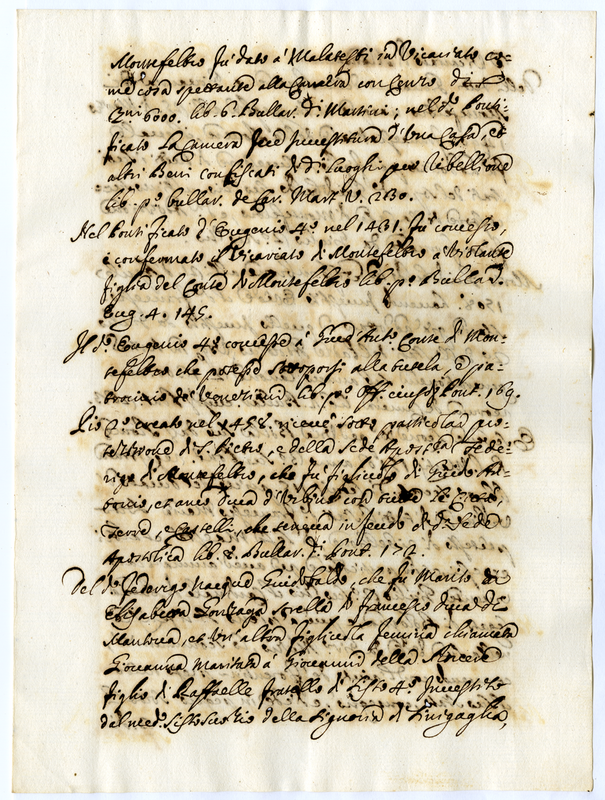 Montefeltro fu dato à Malatesti in Vicariato co-
me cosa spettante alla Camera con Censo di
6000. lib. 6. Bullar. di Martini; nel d.º Ponti-
ficato La Camera fece Investitura d'Una Casa, et
altri Beni confiscati di d.i Luoghi per ribellione
lib. p.º bullar. de Cur. Mart. V. 280.
Nel Pontificato d'Eugenio 4.º nel 1431. fu concesso,
e confermato il Vicariato di Montefeltro a Violante
figlia del Conte di Montefeltro lib. p.º Bullar.
Eug. 4. 145.
Il d.º Eugenio 4.º concesse à Guid'Ant.º Conte di Mon-
tefeltro che potesse sottoporsi alla tutela, e pa-
trocinio de Veneziani. lib. p.º Off. eiusd. Pont. 169.
Pio 2.º creato nel 1458. ricevè sotto particolar pro-
tettione di S. Pietro, e della Sede Apostca Fede-
rigo di Montefeltro, che fu figliuolo di Guido An-
tonio, et anco Duca d'Urbino con tutte le Città,
Terre, e Castelli, che teneva in feudo di d.a Sede
Apostolica lib. 8. Bullar. d.i Pont. 172.
Del d.º Federigo nacque Guidobaldo, che fu Marito di
Elisabetta Gonzaga sorella di Francesco Duca di
Mantova, et un'altra figliuola femina chiamata
Giovanna maritata à Giovanni della Rovere
figlio di Raffaelle fratello di Sisto 4.º Investito
dal med.º Sisto suo Zio della Signoria di Sinigaglia,